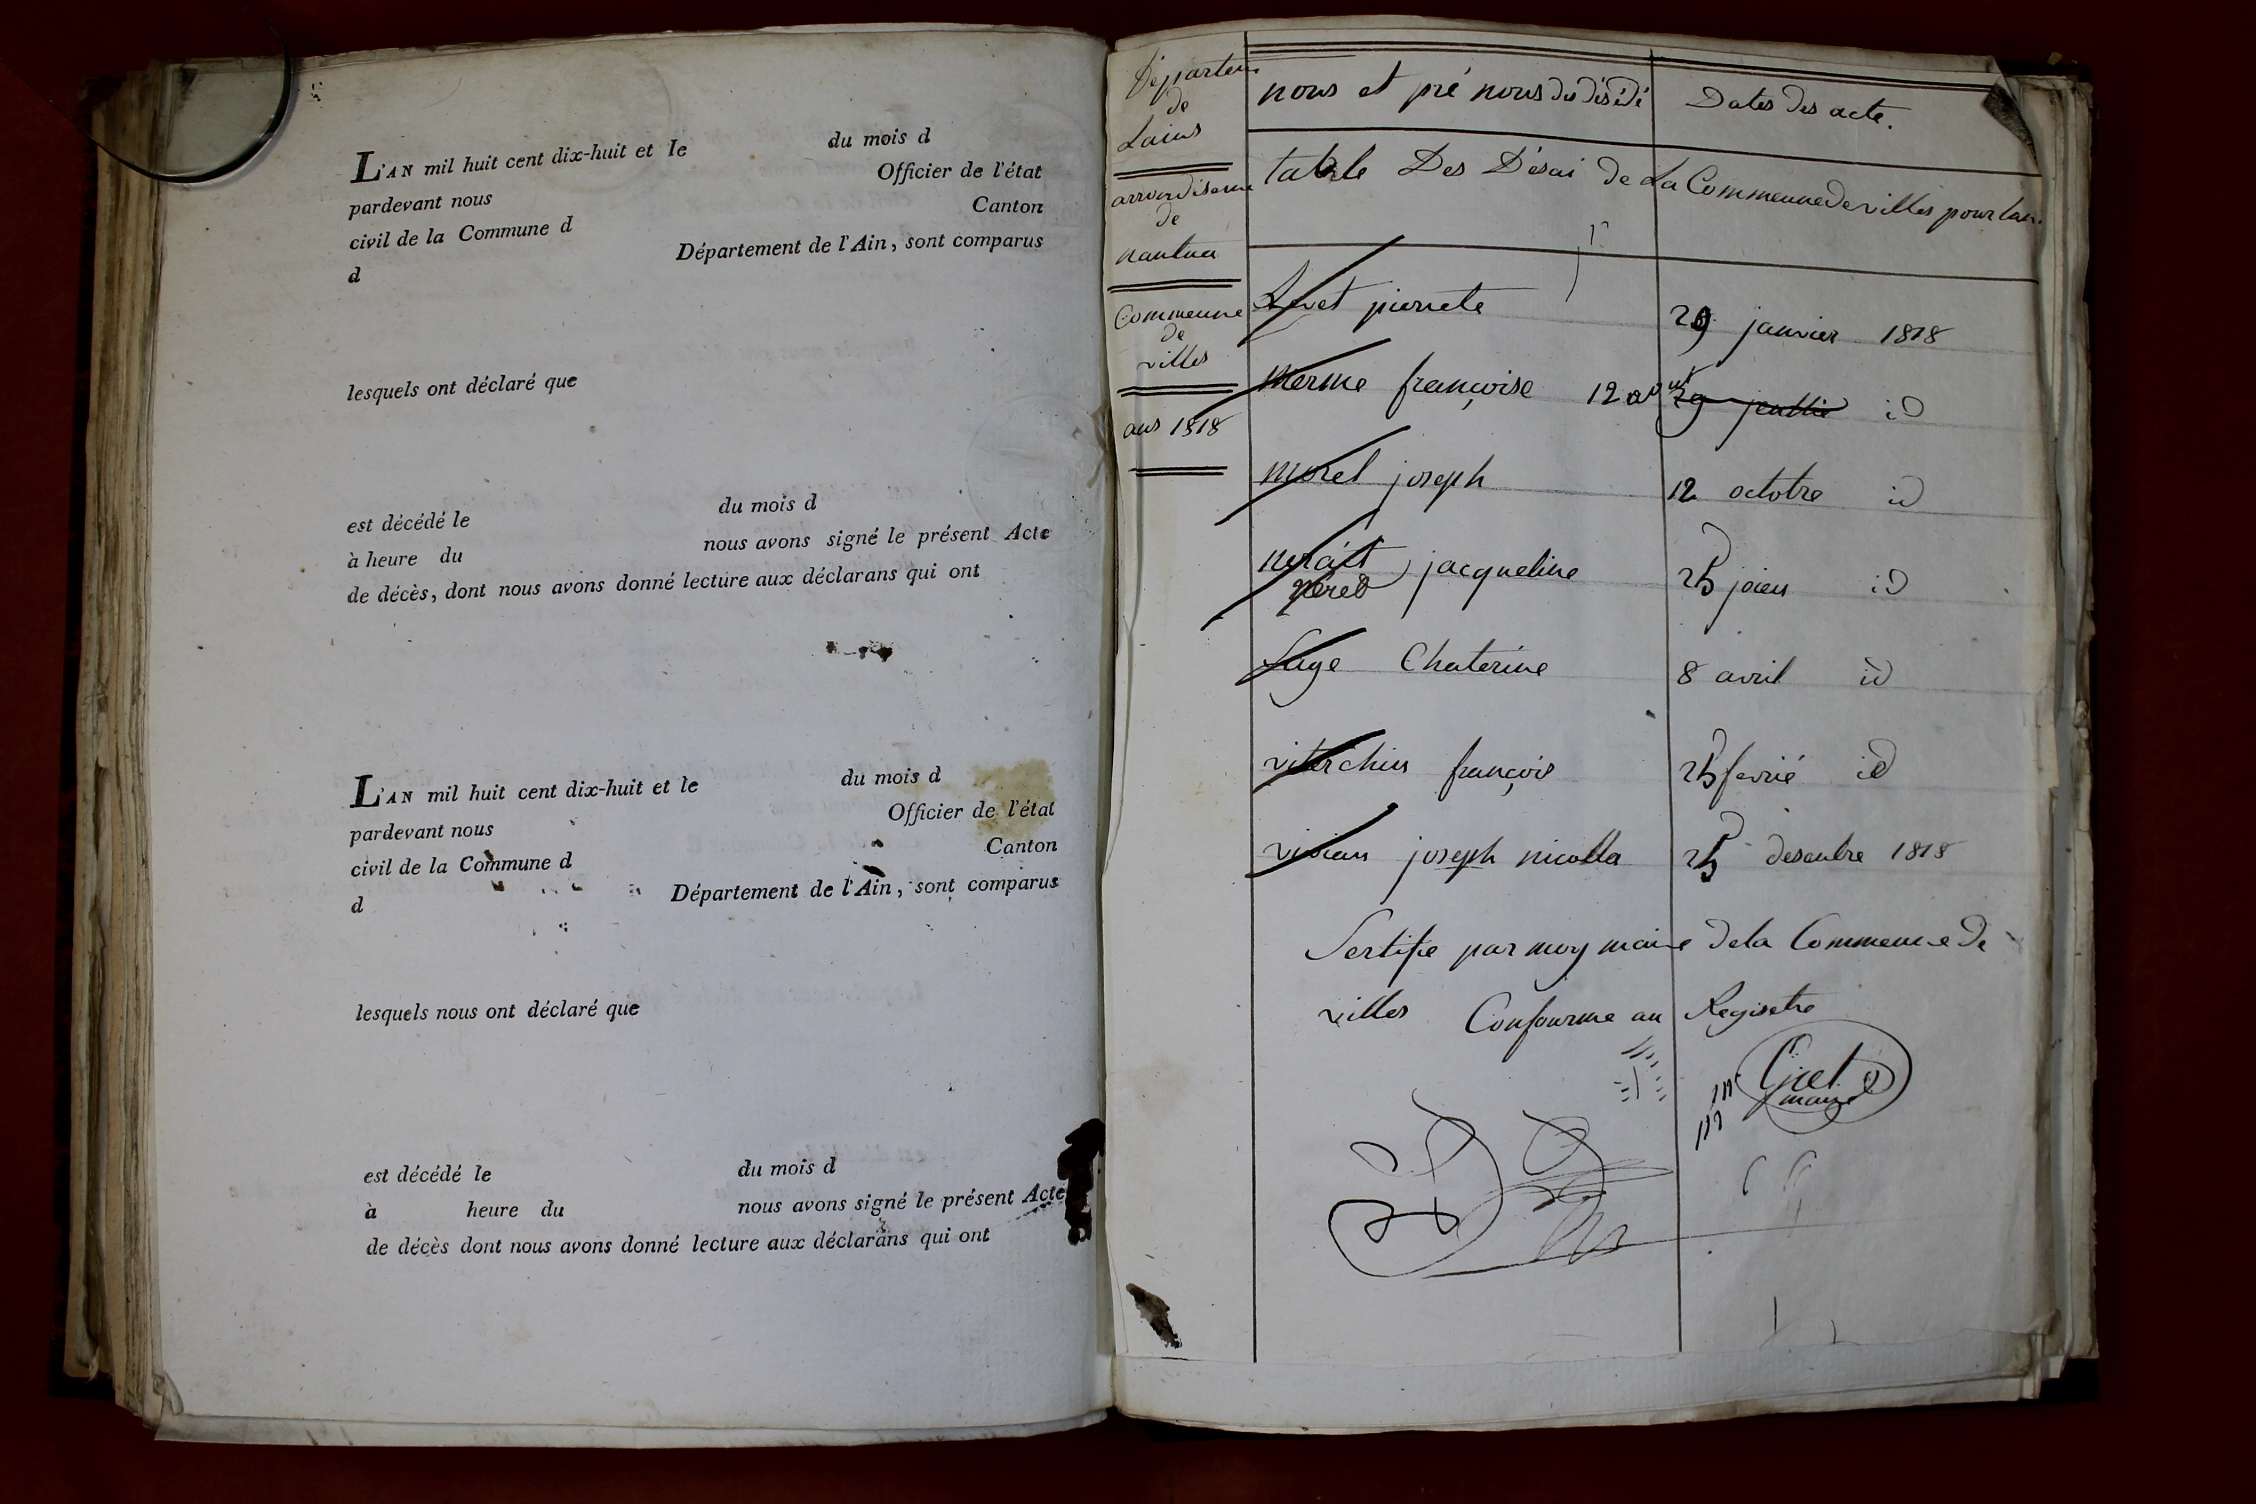 L'AN mil huit cent dix-huit et le du mois d
pardevant nous Officier de l'état
civil de la Commune d Canton
d Département de l'Ain, sont comparus
lesquels ont déclaré que
est décédé le du mois d
à heure du nous avons signé le présent Acte
de décès, dont nous avons donné lecture aux déclarans qui ont
L'AN mil huit cent dix-huit et le du mois d
pardevant nous Officier de l'état
civil de la Commune d Canton
d Département de l'Ain, sont comparus
lesquels nous ont déclaré que
est décédé le du mois d
à heure du nous avons signé le présent Acte
de décès dont nous avons donné lecture aux déclarans qui ont
Départem
de
Lains
arrondiseme
de
nantua
Commeune
de
villes
ans 1818
nous et pré nous des désédé Dates des acte.
table Des Désai de La Commeune de villes pour lan
pierrete 29 janvier 1818
merme françoise 12 aout 29 juillié id
morel joseph 12 octobre id
jacqueline 25 joien id
neret
Sage Chaterine 8 avril id
françois 25 fevrié id
vivian joseph nicolla 25 desenbre 1818
Sertifie par moy maire de la Commeune de
villes Confourme au Regisetre
maire